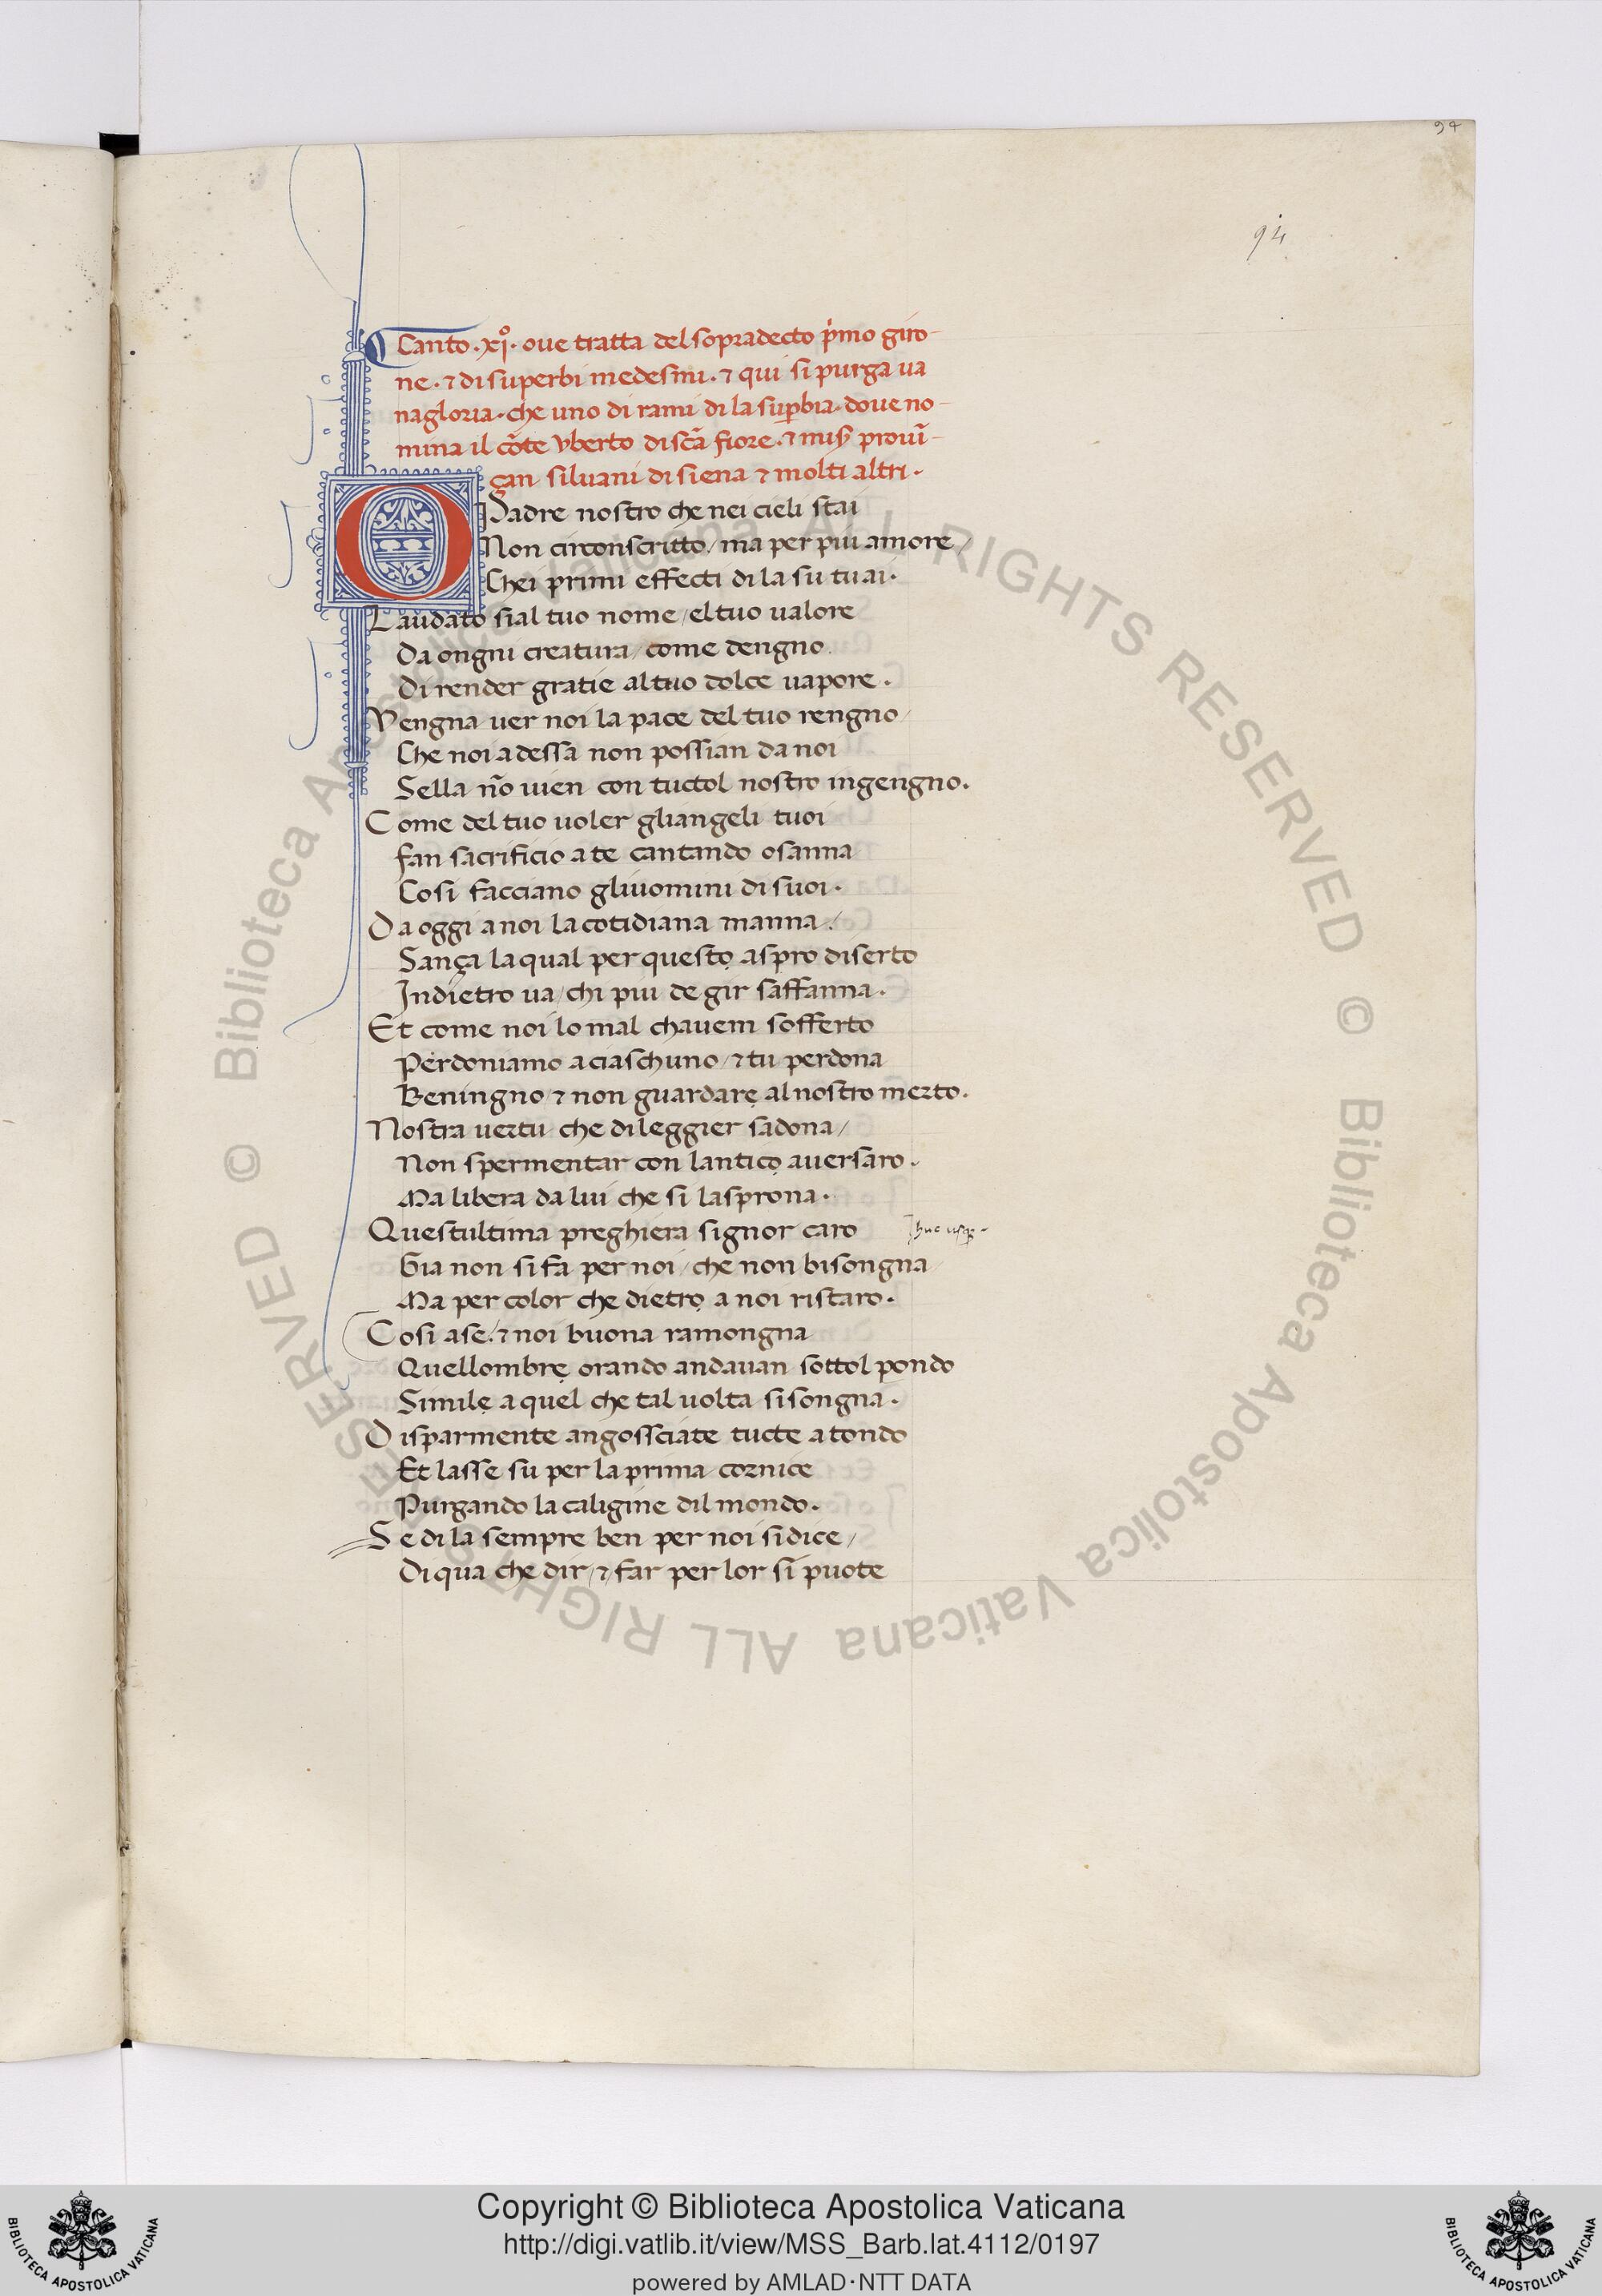 94
94
Canto .xjº. oue tratta del sopradecto p̓mo giro-
ne. ⁊ di superbi medesmi. ⁊ qui si purga ua
nagloria. che uno di rami di la sup̱bia. doue no-
mina il cōte vberto di sc̄a fiore. ⁊ mis̄ prouī-
çan siluani di siena ⁊ molti altri.
O Padre nostro che nei cieli stai
Non circonscritto/ ma per piu amore/
Chei primi effecti di la su tu ai.
Laudato sial tuo nome/ el tuo ualore
Da ongni creatura/ come dengno
Di render gratie al tuo dolce uapore.
Vengna uer noi la pace del tuo rengno/
Che noi adessa non possian da noi
Sella nō uien con tuctol nostro ingengno.
Come del tuo uoler gliangeli tuoi
fan sacrificio a te cantando osanna
Cosi facciano gliuomini di suoi.
Da oggi a noi la cotidiana manna/
Sança la qual per questọ aspro diserto
Indietro ua/ chi piu de gir saffanna.
Et come noi lo mal chauem sofferto
Perdoniamo a ciaschuno/ ⁊ tu perdona
Beningno/ ⁊ non guardarẹ al nostro merto.
Nostra uertu che di leggier sadona/
Non spermentar con lanticọ auersaro.
Ma libera da lui che si lasprona.
Questultima preghiera signor caro
huc usq̨
Gia non si fa per noi/ che non bisongna/
Ma per color che dietrọ a noi ristaro.
Cosi a se/ ⁊ noi buona ramongna
Quellombrẹ orando andauan sottol pondo
Similẹ a quel che tal uolta si songna.
Disparmente angossciate tucte a tondo
Et lasse su per la prima cornice
Purgando la caligine dil mondo.
Se di la sempre ben per noi si dice/
Di qua che dir/ ⁊ far per lor si puote
© Biblioteca Apostolica Vaticana ALL RIGHTS RESERVED © Biblioteca Apostolica Vaticana ALL RIGHTS RESERVED
Copyright © Biblioteca Apostolica Vaticana
http://digi.vatlib.it/view/MSS_Barb.lat.4112/0197
powered by AMLAD·NTT DATA
BIBLIOTECA APOSTOLICA VATICANA
BIBLIOTECA APOSTOLICA VATICANA